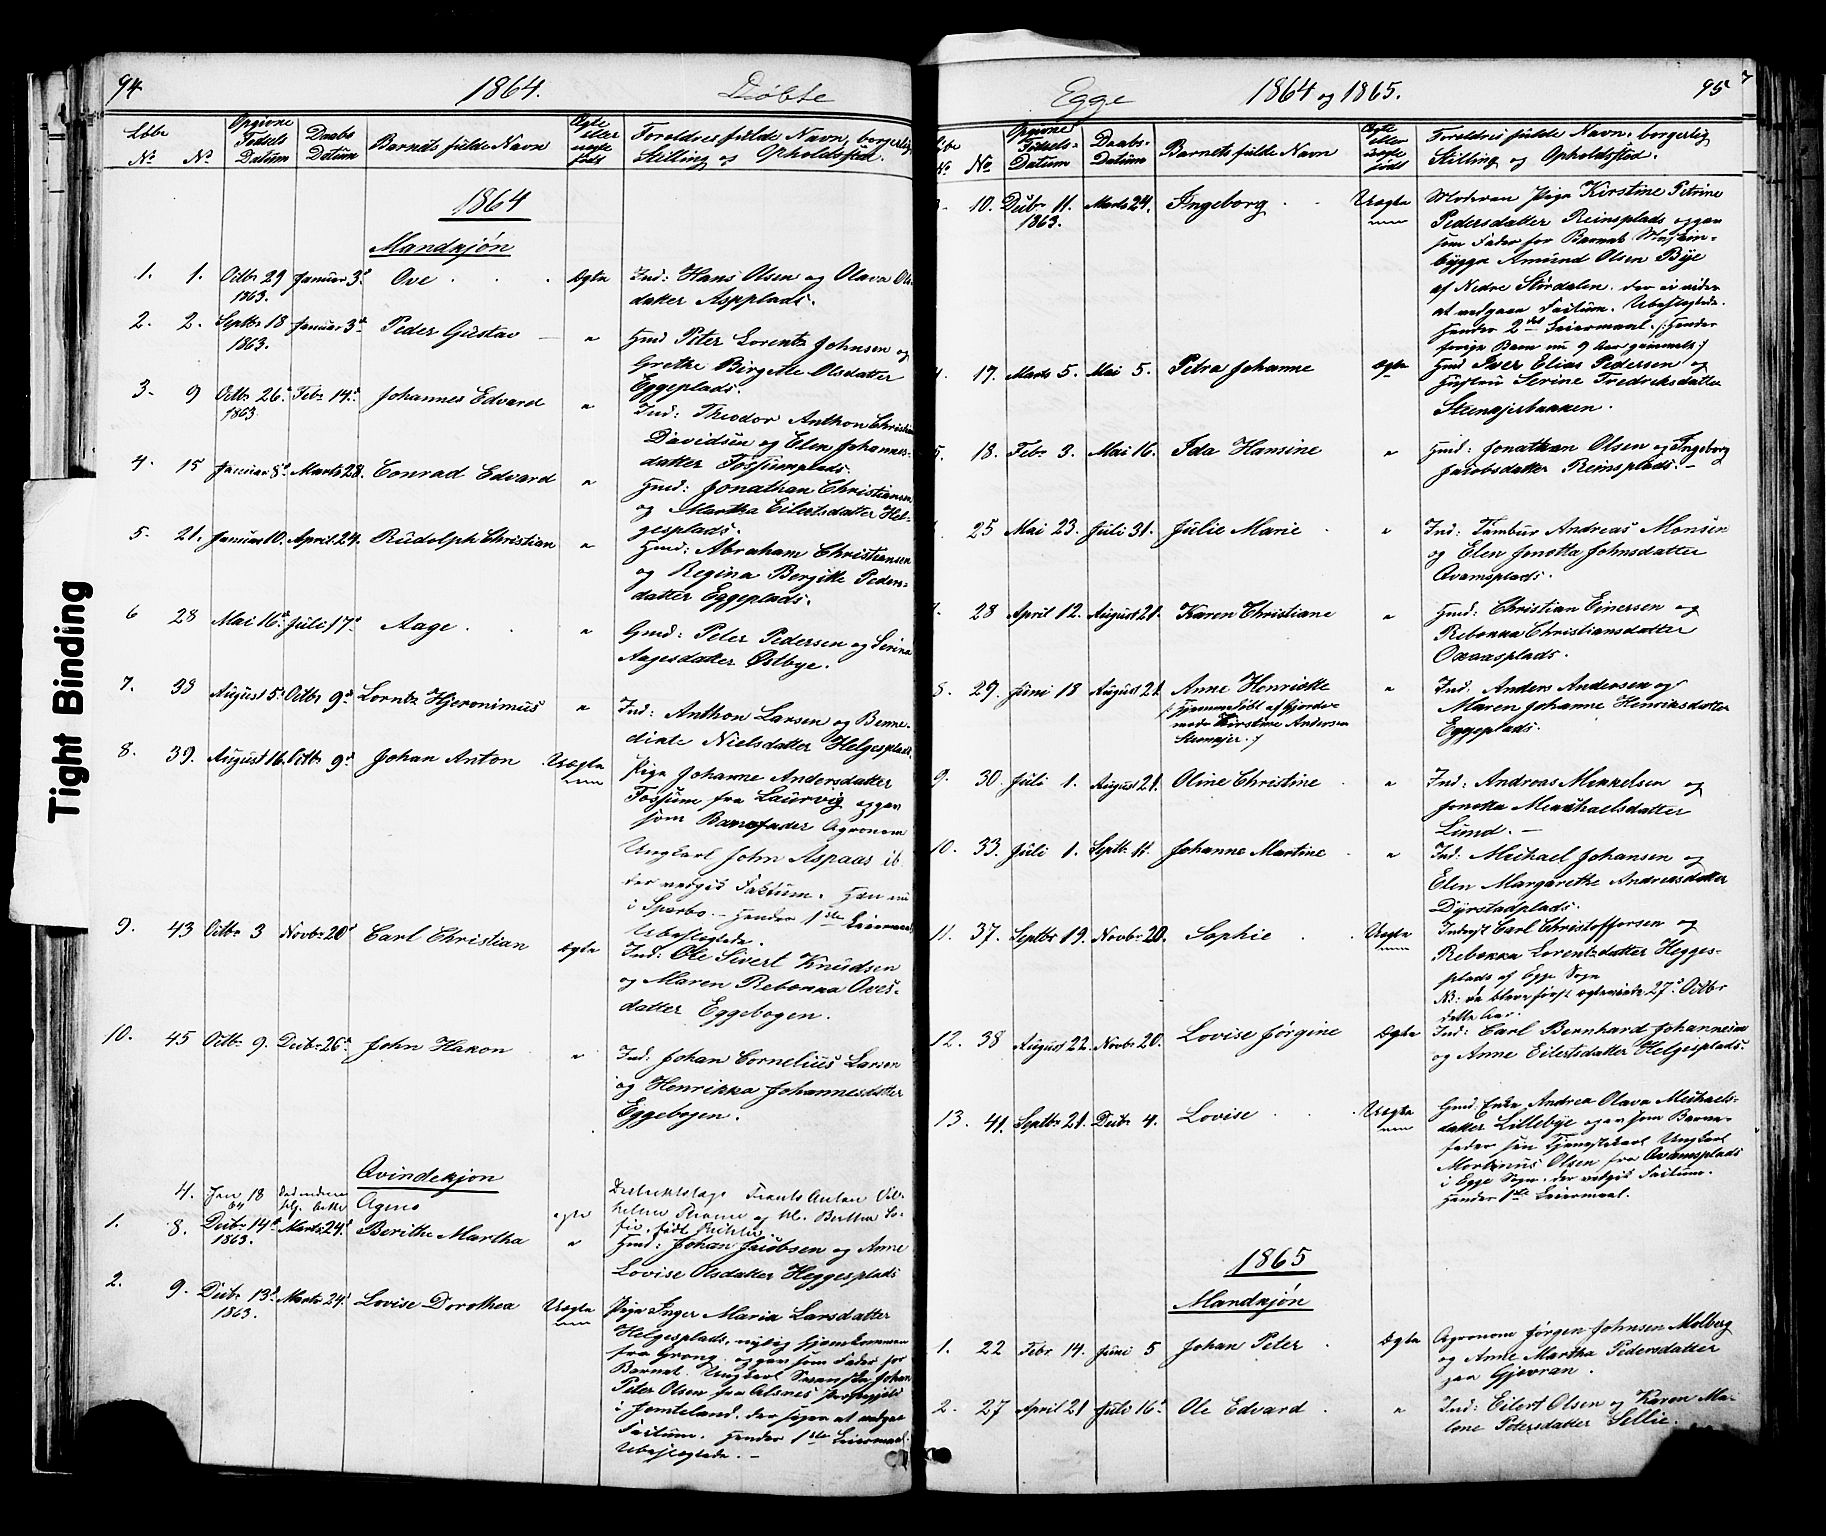 94
1864.
Døbte
Løbe No.
No.
Opgivne Fødsels Datum
Daabs Datum
Barnets fulde Navn
Ægte eller uægte født
Forældres fulde Navn, borgerlig Stilling og Opholdssted.
1864
Mandkjøn
1. 1. Octbr 29 1863. Januar 3d Ove Ægte Ind: Hans Olsen og Olava Ols-
datter Aspplads.
2. 2. Septbr 18 1863. Januar 3d Peder Gustav " Hmd Peter Lorentz Johnsen og
Grethe Birgitte Olsdatter
Eggeplads.
3. 9 Octbr 26d 1863. Febr 14d Johannes Edvard " Ind: Theodor Anthon Christian
Davidsen og Elen Johannes-
datter Fossumplads.
4. 15 Januar 8d Marts 28. Conrad Edvard " Hmd: Jonathan Christiansen
og Martha Eilertsdatter Hel-
gesplads.
5. 21. Januar 10. April 24. Rudolph Christian " Hmd: Abraham Christiansen
og Regina Bergitte Peders-
datter Eggeplads.
6 28 Mai 16d Juli 17d Aage " Gmd: Peter Pedersen og Serina
Aagesdatter Østbye.
7. 38 August 5d Octbr 9d Lorntz Hjeronimus " Ind: Anthon Larsen og Benne-
dikte Nielsdatter Helgesplads
8. 39. August 16. Octbr 9d Johan Anton Uægte Pige Johanne Andersdatter
Fossum fra Laurvig opgav
som Barnefader Agronom
Ungkarl John Aspaas
vedgik Factum. Han nu
i Sparbo. Hendes 1ste Leiermaal
Ubeslegtede.
9. 43 Octbr 3 Novbr 20d Carl Christian Ægte Ind: Ole Sivert Knudsen
og Maren Rebekka Oves-
datter Eggebogen.
10. 45 Octbr 9. Decbr 26d John Hakon " Ind: Johan Cornelius Larsen
og Henrikka Johannesdatter
Eggebogen.
Qvindekjøn
4. Jan 18 64 Agnes ægte Distriktslæge Frants Anton Vil-
helm og M. Berthea So-
fie, født
1. 8. Decbr 14d 1863. Marts 24d Berithe Martha " Hmd: Johan Jacobsen og Anne
Lovise Olsdatter Heggesplads
2. 9. Decbr 13d 1863. Marts 24d Lovise Dorothea Uægte Pige Inger Maria Larsdatter
Helgesplads, nylig hjemkommen
fra Grong, opgav som Fader for
Barnet Ungkarl Johan
Peter Olsen fra Alsnes
i Jemteland, der siges at vedgaa
Factum. Hendes 1ste Leiermaal.
Ubeslegtede. —
Egge
1864 og 1865.
95
Løbe No
No
Opgivne Fødsels-Datum
Daabs-Datum
Barnets fulde Navn
Ægte eller uægte født
Forældres fulde Navn, borgerlig Stilling og Opholdssted.
3. 10. Decbr 11. 1863. Marts 24. Ingeborg Uægte Moderen Pige Kirstine Petrine
Pedersdatter Reinsplads opgav
som Fader for Barnet
Amund Olsen Bye
af Nedre Stördalen. der ei viden
at vedgaa Factum. Ubeslegtede.
Hendes 2det Leiermaal. /: Hendes
forige Barn nu 9 Aar gammelt :/
4. 17. Marts 5. Mai 5. Petra Johanne Ægte Hmd Iver Elias Pedersen og
Hustru Serine Fredriksdatter
Steenkjerbakken.
5. 18. Febr 3. Mai 16. Ida Hansine " Hmd: Jonathan Olsen og Ingeborg
Jacobsdatter Reinsplads. —
25 Mai 23. Juli 31. Julie Marie " Ind: Tambur Andreas Monsen
og Elen Jonetta Johnsdatter
Qvamsplads.
7. 28 April 12. August 21. Karen Christiane " Hmd: Christian Einersen og
Rebekka Christiansdatter
8. 29. Juni 18 August 21. Anne Henriette " Ind: Anders Andersen og
/: Hjemmedøbt af Gjorde-
moder Kirstine Andersen
Steenkjer :/
Maren Johanne Henriksdatter
Eggeplads.
9. 30. Juli 1. August 21. Oline Christine " Ind: Andreas Mikkelsen og
Jonetta Michaelsdatter
Lund. —
10. 33. Juli 1. Septb. 11. Johanne Martine " Ind: Michael Johansen og
Elen Margarethe Andreasdatter
Dyrstadplads.
11. 37. Septbr 19. Novbr 20. Sophie Uægte Carl Christoffersen og
Rebekka Lorentzdatter Hegges-
plads af Egge Sogn
NB: de bleve først egteviede 27d Octbr
dette Aar.
12. 38 August 22. Novbr 20. Lovise Jørgine Ægte Ind: Carl Bernhard Johannesen
og Anne Eilertsdatter Helgesplads.
13. 41. Septbr 21. Decbr 4. Lovise Uægte Gmd: Enke Andrea Olava Michaels-
datter Lillebye opgav som Barne-
fader sin Tjenestekarl Ungkarl
Mortinus Olsen fra Qvamsplads
i Egge Sogn, der vedgik Factum.
Hendes 1ste Leiermaal.
1865
Mandkjøn
1. 22 Febr. 14. Juni 5 Johan Peter Ægte Agronom Jørgen Johnsen Molberg
og Anne Martha Pedersdatter
paa Gjevran.
2. 27 April 21 Juli 16d Ole Edvard " Ind: Eilert Olsen og Karen Ma-
lene Petersdatter Sellie.
Tight Binding